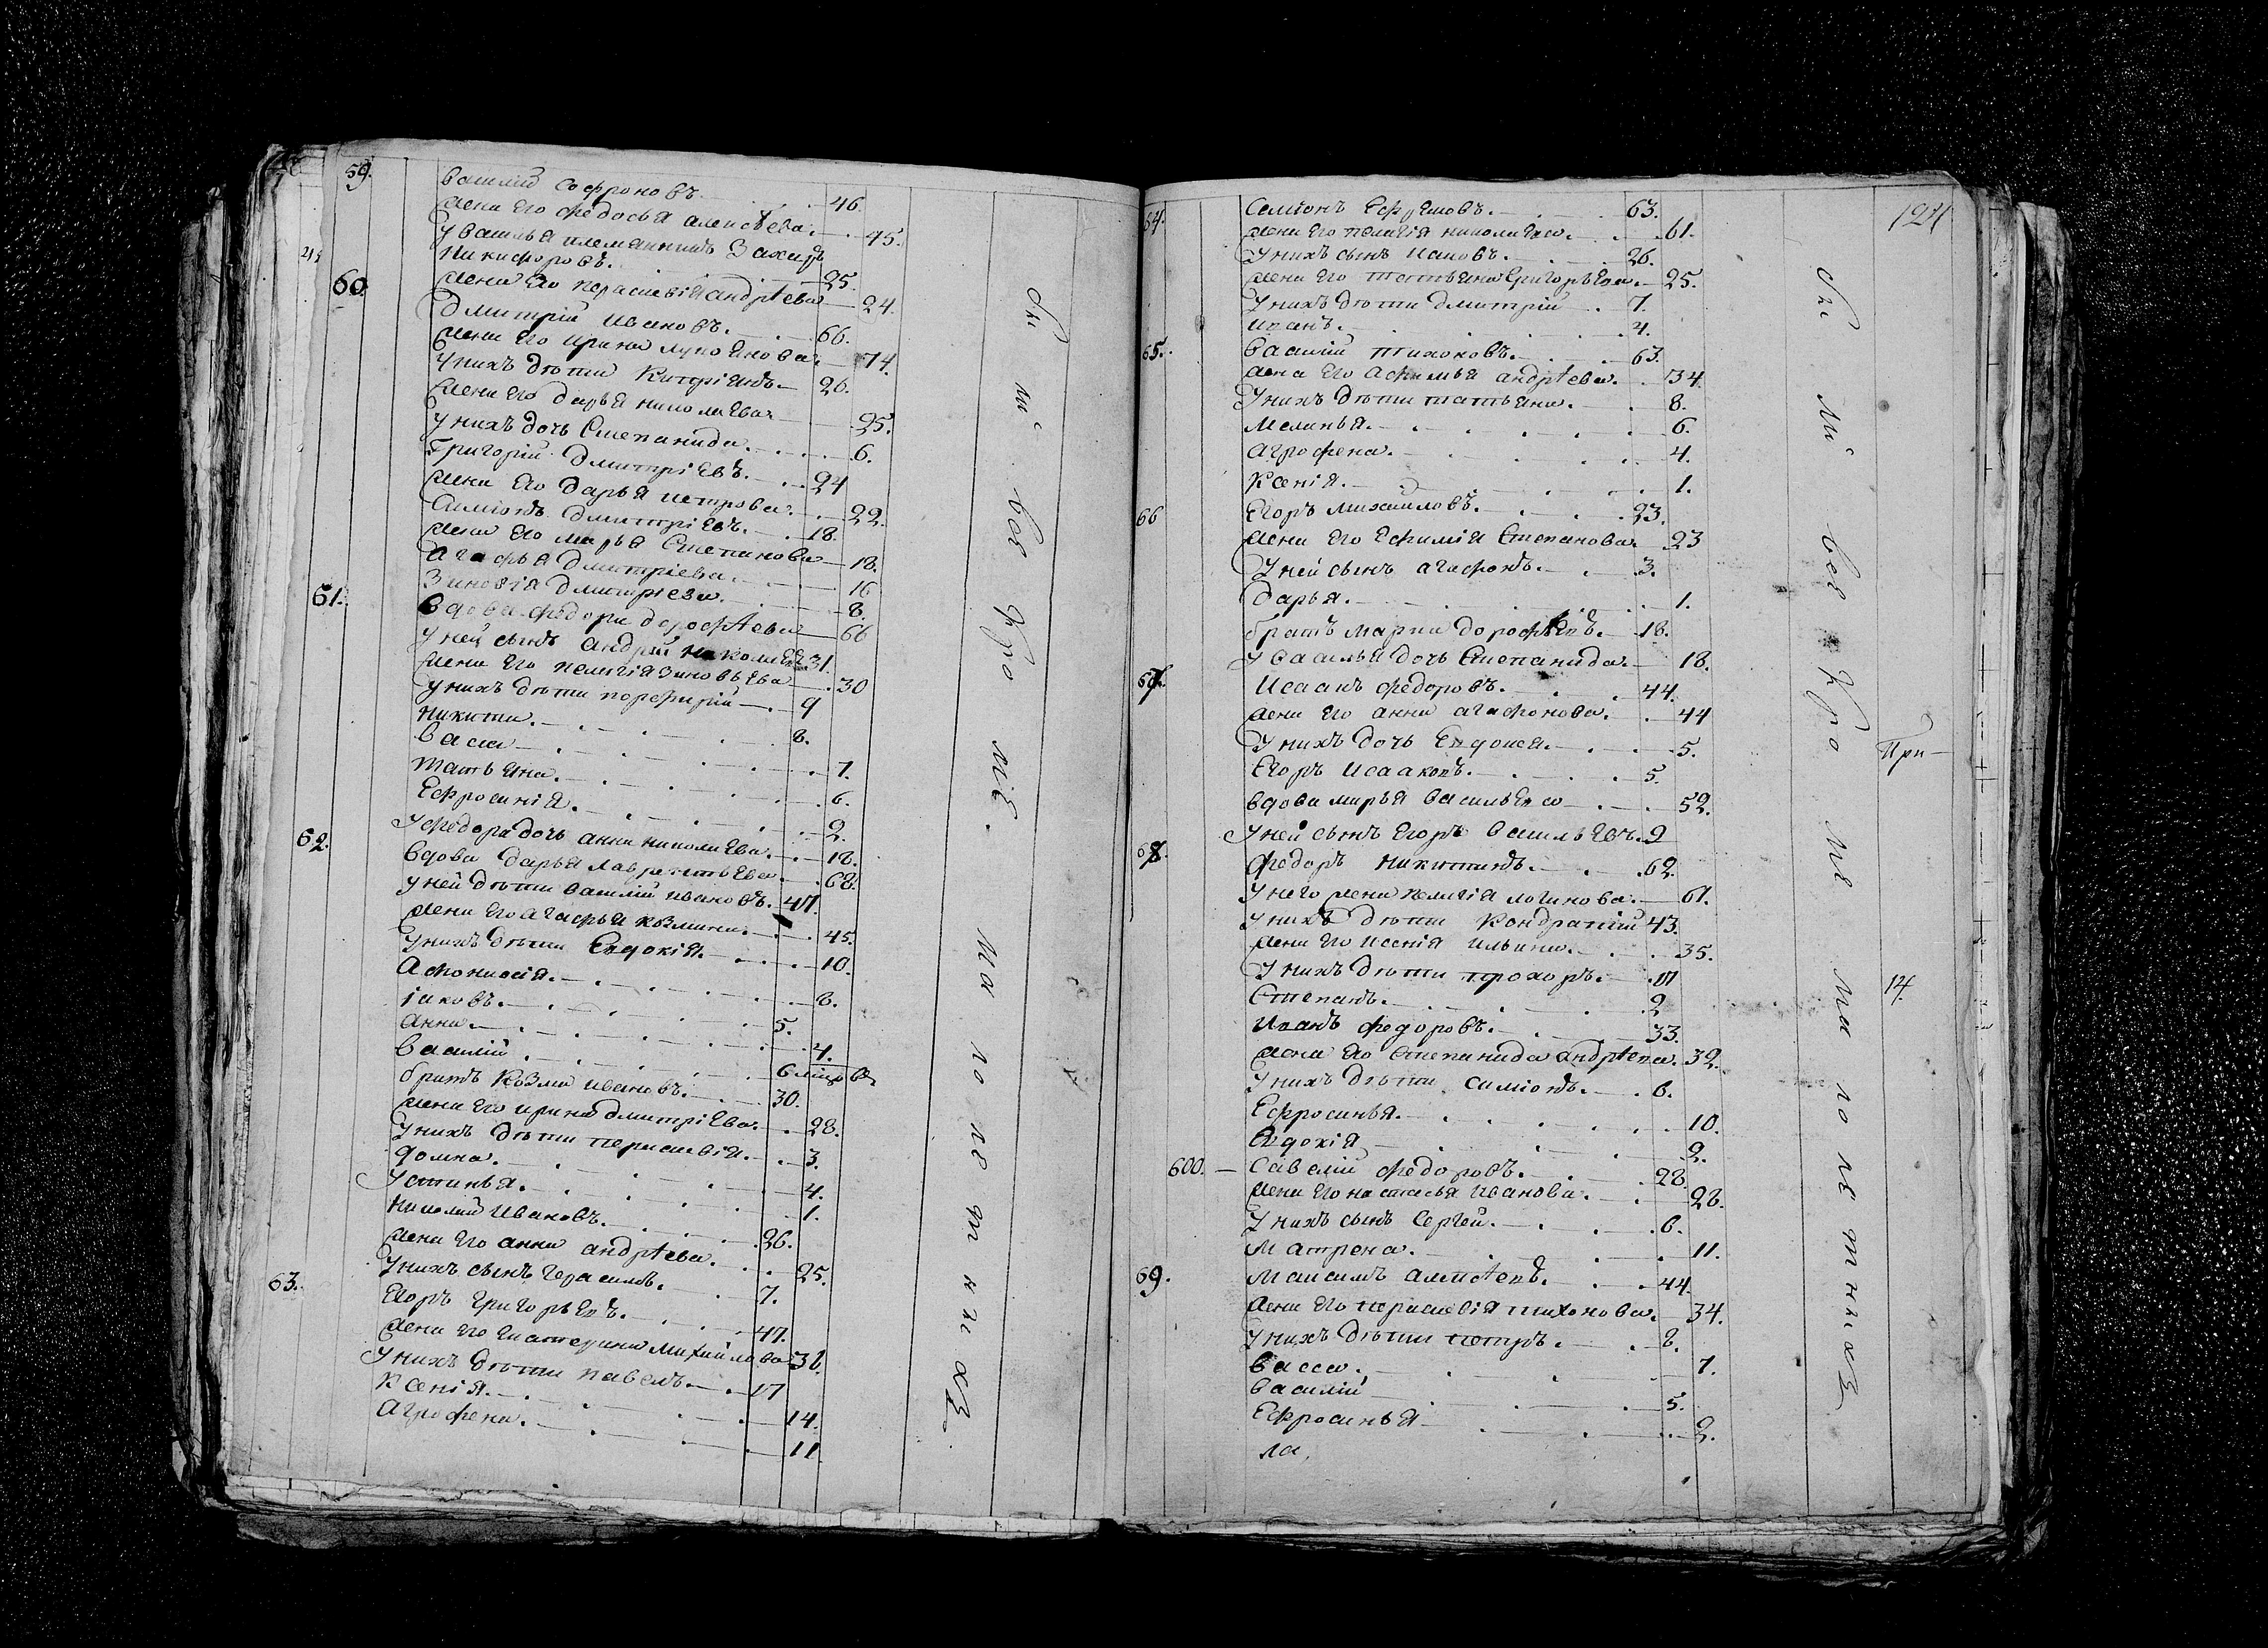 59. Василий Софроновъ. 46.
жена его Федосья Алексѣева. 45.
у Василья племянникъ Захаръ
Никифоровъ. 25.
жена его Парасковія андрѣева 24.
60. Дмитрій Ивановъ. 66.
жена его ирина лукоянова 74.
у нихъ дѣти 26.
жена его дарья николаева 25.
у нихъ дочь Степанида. 6.
Григорій Дмитріевъ. 24
жена его дарья петрова. 22.
Симіонъ Дмитріевъ. 18.
жена его марья Степанова 18.
агафья дмитріева. 16
Зиновія дмитріева. 8.
61. вдова федора дорофѣева 66
у ней сынъ андрей николаевъ 31.
жена его пелагія Зиновьева 30
у нихъ дѣти порфирій 9
никита. 8.
васса 7.
татьяна. 6.
Ефросинія. 2.
у федора дочь анна николаева. 18.
62. вдова дарья лаврентьева 68.
у ней дѣти василій ивановъ. 47.
жена его агафья козмина. 45.
у нихъ дѣти Евдокія. 10.
Афонасія. 8.
іаковъ. 5.
анна. 4.
василій 6
братъ Козма ивановъ. 30.
жена его ирина дмитріева. 28.
у нихъ дѣти парасковія. 3.
домна. 4.
устинья. 1.
николай ивановъ. 26.
жена его анна андрѣева. 25.
у нихъ сынъ герасимъ. 7.
63. Егоръ григорьевъ. 47.
жена его Екатерина михайлова 38.
у нихъ дѣти павелъ. 17
Ксенія. 14.
Агрофена. 11
Як ли все кро мѣ ма ло лѣт ныхъ
124
64. Семіонъ Ефремовъ. 63.
жена его пелагія николаева. 61.
у нихъ сынъ 26.
жена его татьяна григорьева. 25.
у нихъ дѣти дмитрій 7.
иванъ. 4.
65. василій тихоновъ. 63.
жена его андрѣева. 34.
у нихъ дѣти татьяна. 8.
Меланья. 6.
агрофена. 4.
Ксенія. 1.
66 Егоръ михайловъ. 23.
жена его Ефимія Степанова 23
у ней сынъ агафонъ. 3.
дарья. 1.
братъ дорофѣевъ. 18.
у василья дочь Степанида. 18.
67. Исаакъ федоровъ. 44.
жена его анна агафонова. 44
у нихъ дочь Евдокея. 5.
Егоръ Исааковъ. 5.
вдова марья васильева 52.
у ней сынъ Егоръ васильевъ. 9
68. федоръ никитинъ. 62.
у него жена пелагія логинова. 61.
у нихъ дѣти Кондратій 43.
жена его ксенія ильина. 35.
у нихъ дѣти прохоръ. 17
Степанъ. 2
Иванъ федоровъ. 33.
жена его Степанида андрѣева. 32.
у нихъ дѣти симіонъ. 6.
Ефросинья. 10.
Евдокія 2.
600. Савелій федоровъ. 28.
жена его настасья Иванова. 28.
у нихъ сынъ Сергей. 6.
Матрена. 11.
69. Максимъ алексѣевъ. 44.
жена его парасковія тихонова. 34.
у нихъ дѣти петръ. 8.
васса. 7.
василій 5.
Ефросинья 2.
ла,
ли все кро мѣ ма ло лѣт ныхъ
При
14.